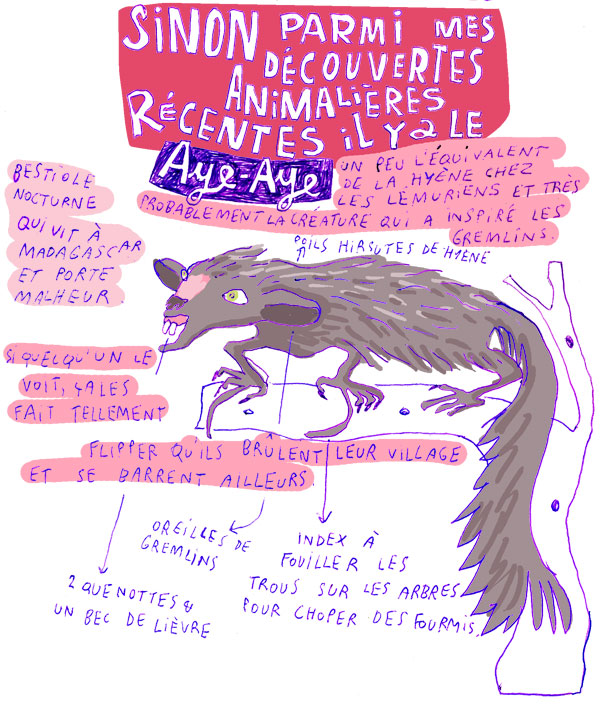 SINON PARMI MES
DÉCOUVERTES
ANIMALIÈRES
RÉCENTES iL Y a LE
Aye-Aye
UN PEU L'ÉQUIVALENT
DE LA HYÈNE CHEZ
LES LÉMURIENS ET TRÈS
PROBABLEMENT LA CRÉATURE QUI A INSPIRÉ LES
GREMLINS.
BESTIOLE
NOCTURNE
QUI VIT À
MADAGASCAR
ET PORTE
MALHEUR.
POILS HIRSUTES DE HYÈNE
SI QUELQU'UN LE
VOIT, ÇA LES
FAIT TELLEMENT
FLIPPER QU'ILS BRÛLENT LEUR VILLAGE
ET SE BARRENT AILLEURS.
OREILLES DE
GREMLINS
INDEX À
FOUILLER LES
TROUS SUR LES ARBRES
POUR CHOPER DES FOURMIS.
2 QUENOTTES &
UN BEC DE LIÈVRE